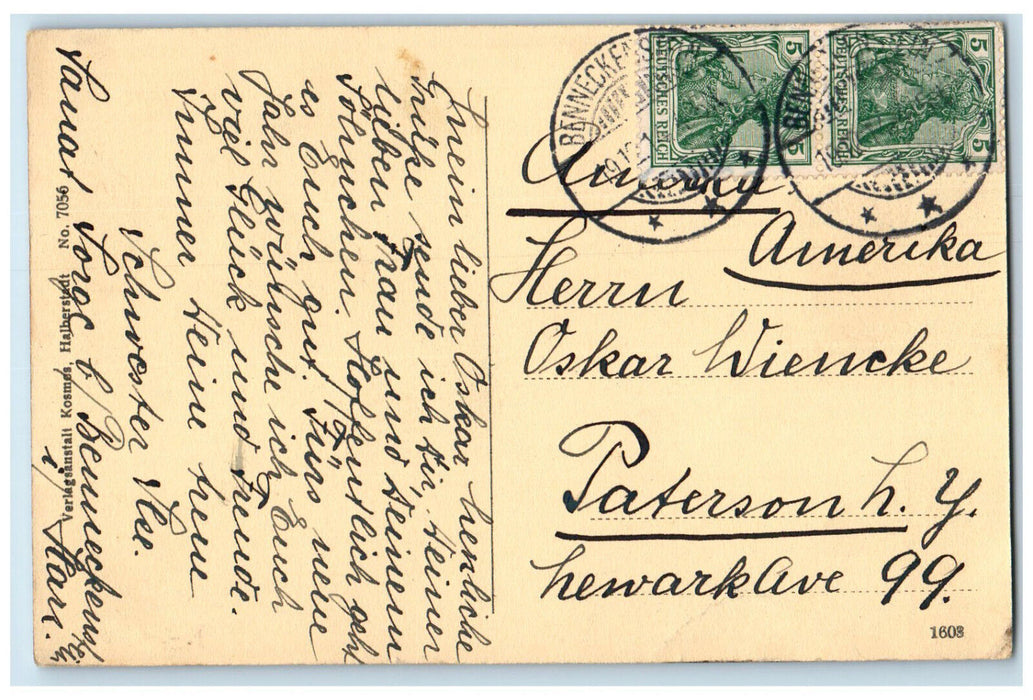 Mein lieber Oskar herzliche
Grüße sende ich Dir, Deiner
lieben Frau und Deinem
Söhnchen. Hoffentlich geht
es Euch gut. Fürs neue
Jahr wünsche ich Euch
viel Glück und Freude.
Immer Deine treue
Schwester
Sorge b/Benneckenst
i/Harz.
Verlagsanstalt Kosmos, Halberstadt No. 7056
BENNECKENSTEIN
5 DEUTSCHES REICH 5
BENNECKENSTEIN
5 DEUTSCHES REICH 5
Amerika
Amerika
Herrn
Oskar Wiencke
Paterson N. Y.
Newark Ave 99.
1608